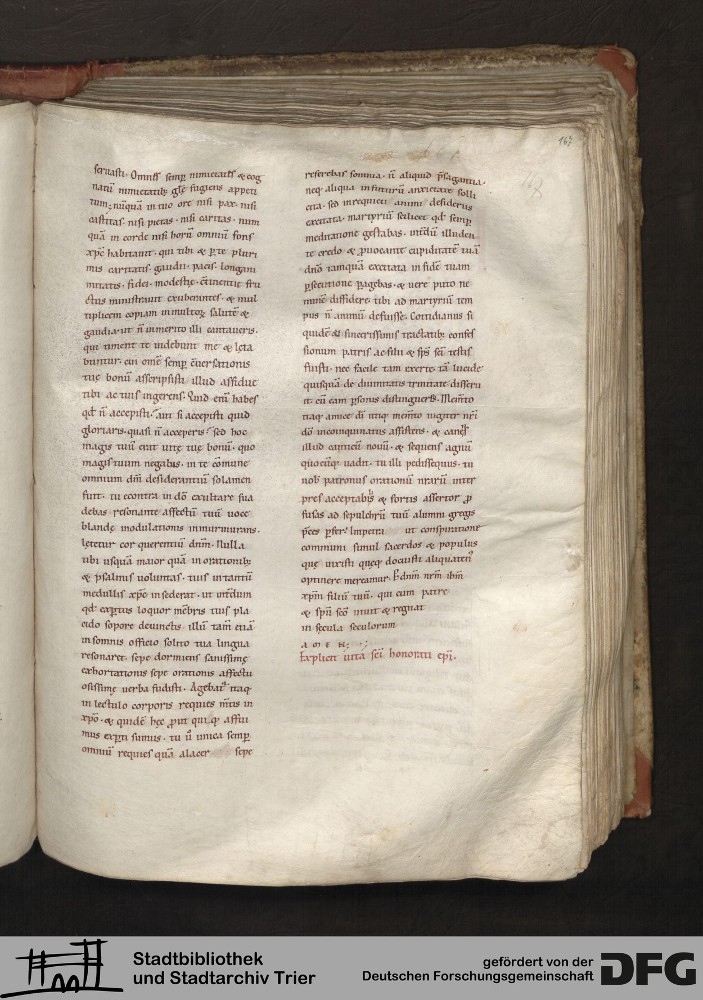 167
167
seruasti. Omnis semp inimicatis & cog
natu inimicitatib; glę fugiens appeti
tum; nūquā in tuo ore nisi pax. nisi
castitas. nisi pietas. nisi caritas. num
quā in corde nisi horū omniū fons
xpc habitauit. qui tibi & p te pluri
mis caritatis. gaudii. pacis. longani
mitatis. fidei. modestię. ctinentię fru
ctus ministrauit exuberantes. & mul
tiplicem copiam in multoȝ salutē &
gaudia. ut n̄ inmerito illi cantaueris.
qui timent te uidebunt me & lęta
buntur. cui om̄e semp cuersationis
tuę bonū asscripsisti. illud assidue
tibi ac tuis ingerens. Quid enī habes
qd n̄ accepisti. aut si accepisti quid
gloriaris. quasi n̄ acceperis. sed hoc
magis tuū erat uitę tuę bonū. quo
magis tuum negabas. in te cōmune
omnium dn̄i desiderantiū solamen
fuit. tu econtra in dō exultare sua
debas. resonante affectū tuū uoce
blandę modulationis inmurmurans.
lętetur cor querentiū dnm. Nulla
tibi usquā maior quā in orationib;
& psalmis uoluntas. tuis in tantū
medullis xpc insederat. ut interdum
qd exptus loquor mēbris tuis pla
cido sopore deuinctis. illū tam̄ etiā
in somnis officio solito tua lingua
resonaret. sepe dormiens sanissimę
exhortationis sepe orationis affectu
osissimę uerba fudisti. Agebat itaq
in lectulo corporis requies mtis in
xpo. & quidē hęc put qui q; assui
mus expti sumus. tu u unica semp
omniū requies quā alacer sepe
referebas somnia. n̄ aliquid psagantia.
neq; aliqua in futurū anxietate solli
cita. sed inrequieti animi desideriis
excitata. martyriū scilicet qd semp
meditatione gestabas. int̄dū illuden
te credo & puocante cupiditatē tuā
dn̄o tamquā excitata in fidē tuam
psecutione pagebas. & uere puto ne
minē diffidere tibi ad martyriū tem
pus n̄ animū defuisse. Cotidianus si
quidē & sincerissimis tractatib; confes
sionum patris ac filii & sps sc̄i testis
fuisti. nec facile tam exerte tā lucide
quisquā de diuinitatis trinitate disseru
it. cū eam psonis distingueret. Mem̄to
itaq; amice di itiq; mem̄to iugiter nr̄i
dō incoinquinatus assistens. & canes
illud canticū nouū. & sequens agnū
quocūq; uadit. tu illi pedissequus. tu
nob patronus orationū nr̄arū inter
pres acceptabis & fortis assertor p
fusas ad sepulchrū tuū alumni gregis
pces pfer. Impetra ut conspiratione
communi simul sacerdos & populus
quę iussisti quęq; docuisti aliquaten
optinere mereamur. P dnm nrm ihm
xpm filiū tuū. qui cum patre
& spu sco uiuit & regnat
in secula seculorum
A M E N;
Explicit uita sci honorati epi.
Stadtbibliothek
und Stadtarchiv Trier
gefördert von der
Deutschen Forschungsgemeinschaft
DFG